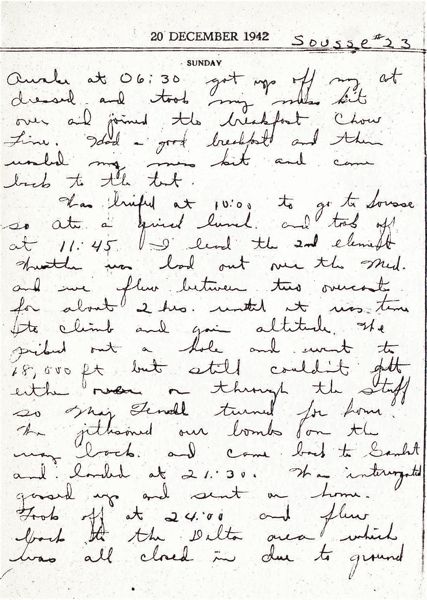 20 DECEMBER 1942 Sousse #23
SUNDAY
Awake at 06:30 got up off my cot
dressed and took my mess kit
over and joined the breakfast chow
line. Had a good breakfast and then
washed my mess kit and came
back to the tent.
Was briefed at 10:00 to go to Sousse
so ate a quick lunch and took off
at 11:45 I lead the 2nd element
Weather was bad out over the Med.
and we flew between two overcasts
for about 2 hrs. until it was time
to climb and gain altitude. We
picked out a hole and went to
18,000 ft but still couldn't get
either over or through the stuff
so Maj turned for home.
We jettisoned our bombs on the
way back and came back to Gambut
and landed at 21:30. Was interrogated
gassed up and sent on home.
Took off at 24:00 and flew
back to the Delta area which
was all closed in due to ground